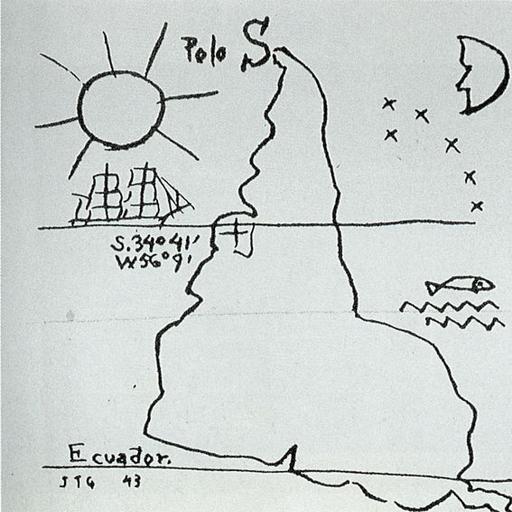 Polo S.
S. 34°41'
W 56°9'
Ecuador.
JTG 43